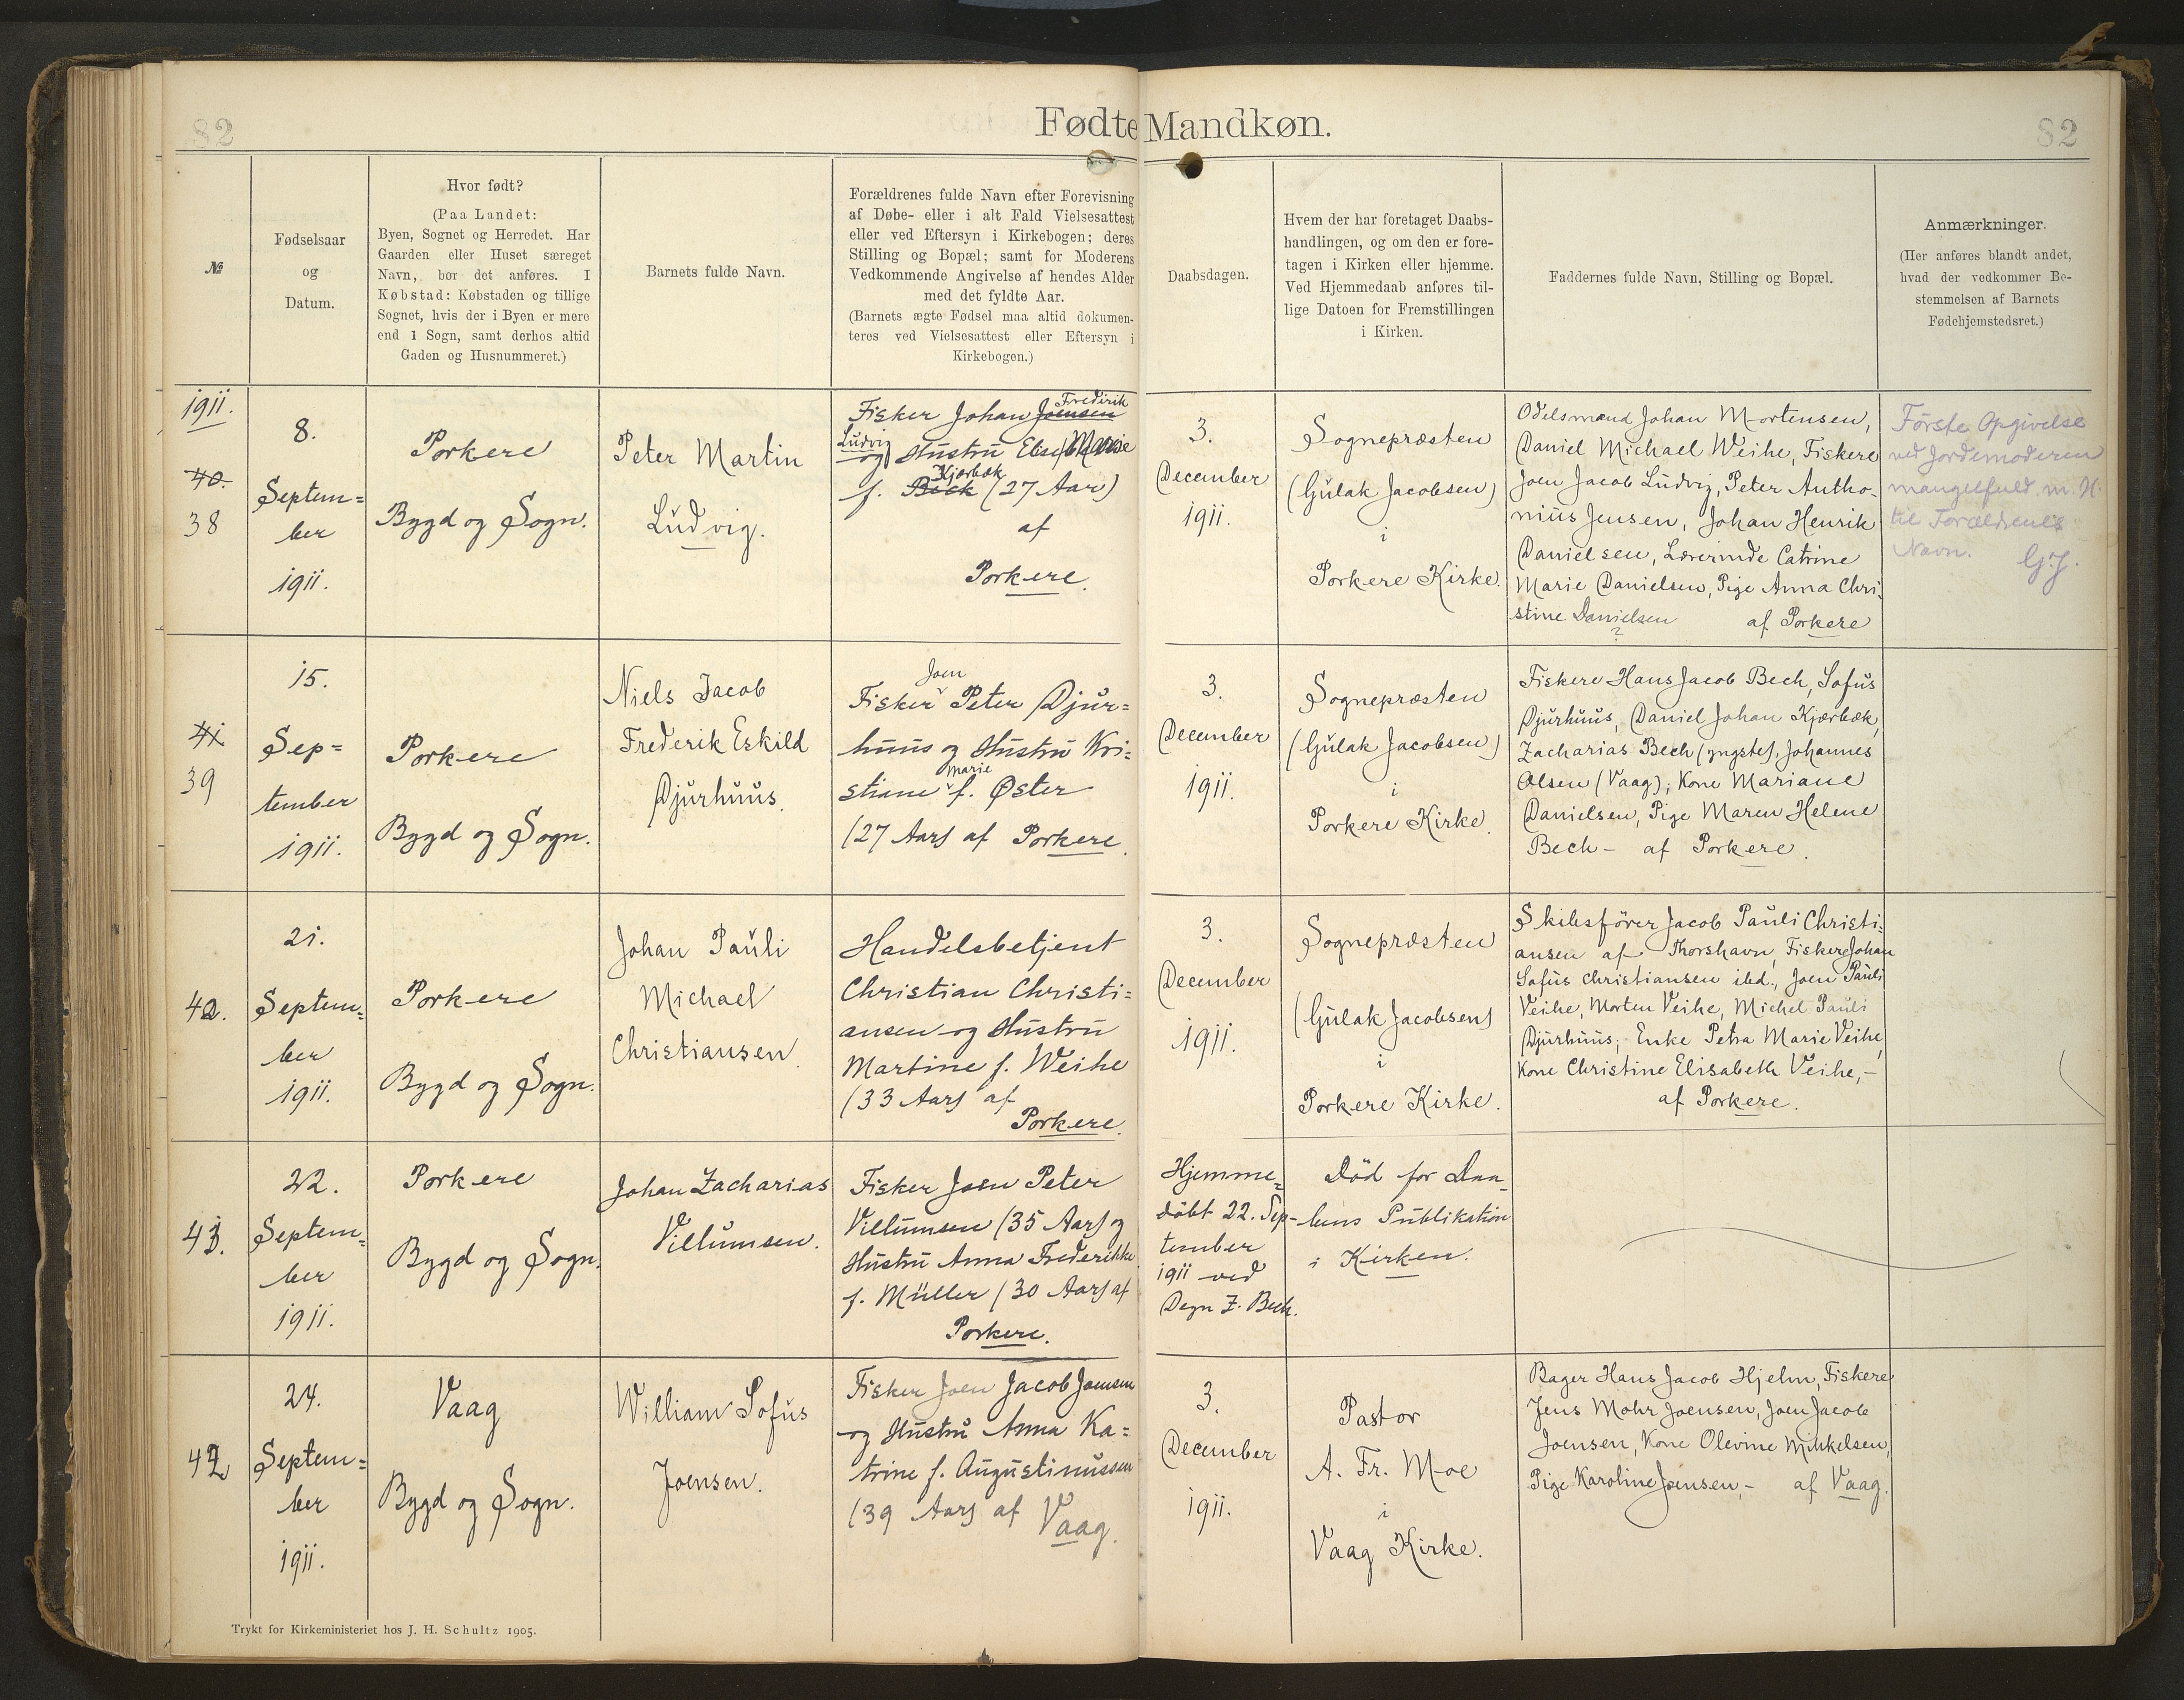 82
Fødte Mandkøn.
82
№
Fødselsaar
og
Datum.
Hvor født?
(Paa Landet:
Byen, Sognet og Herredet. Har
Gaarden eller Huset særeget
Navn, bør det anføres. I
Købstad: Købstaden og tillige
Sognet, hvis der i Byen er mere
end 1 Sogn, samt derhos altid
Gaden og Husnummeret.)
Barnets fulde Navn.
Forældrenes fulde Navn efter Forevisning
af Døbe- eller i alt Fald Vielsesattest
eller ved Eftersyn i Kirkebogen; deres
Stilling og Bopæl; samt for Moderens
Vedkommende Angivelse af hendes Alder
med det fyldte Aar.
(Barnets ægte Fødsel maa altid dokumen-
teres ved Vielsesattest eller Eftersyn i
Kirkebogen.)
Daabsdagen.
Hvem der har foretaget Daabs-
handlingen, og om den er fore-
tagen i Kirken eller hjemme.
Ved Hjemmedaab anføres til-
lige Datoen for Fremstillingen
i Kirken.
Faddernes fulde Navn, Stilling og Bopæl.
Anmærkninger.
(Her anføres blandt andet,
hvad der vedkommer Be-
stemmelsen af Barnets
Fødehjemstedsret.)
1911.
40.
38
8.
Septem=
ber
1911.
Porkere
Bygd og Sogn.
Peter Martin
Ludvig.
Frederik
Fisker Johan Joensen
Ludvig
og Hustru Elsebe Marie
Kjærbæk
f. Beck (27 Aar)
af
Porkere.
3.
December
1911.
Sognepræsten
(Gulak Jacobsen)
i
Porkere Kirke.
Odelsmænd Johan Mortensen,
Daniel Michael Weihe, Fiskere
Joen Jacob Ludvig, Peter Antho-
nius Jensen, Johan Henrik
Danielsen, Lærerinde Catrine
Marie Danielsen, Pige Anna Chri-
stine Danielsen af Porkere
?
Første Opgivelse
ved Jordemoderen
mangelfuld m. H.
til Forældrenes
Navn. G.J.
41
39
15.
Sep=
tember
1911.
Porkere
Bygd og Sogn.
Niels Jacob
Frederik Eskild
Djurhuus.
Joen
Fisker Peter Djur=
huus og Hustru Kri=
Marie
stiane f. Øster
(27 Aar) af Porkere.
3.
December
1911.
Sognepræsten
(Gulak Jacobsen)
i
Porkere Kirke.
Fiskere Hans Jacob Bech, Sofus
Djurhuus, Daniel Johan Kjærbæk,
Zacharias Bech (yngste), Johannes
Olsen (Vaag); Kone Mariane
Danielsen, Pige Maren Helene
Bech - af Porkere.
40.
21.
Septem=
ber
1911.
Porkere
Bygd og Sogn.
Johan Pauli
Michael
Christiansen.
Handelsbetjent
Christian Christi=
ansen og Hustru
Martine f. Weihe
(33 Aar) af
Porkere.
3.
December
1911.
Sognepræsten
(Gulak Jacobsen)
i
Porkere Kirke.
Skibsfører Jacob Pauli Christi=
ansen af Thorshavn, Fiskere Johan
Sofus Christiansen ibd., Joen Pauli
Veihe, Morten Veihe, Michel Pauli
Djurhuus; Enke Petra Marie Veihe,
Kone Christine Elisabeth Veihe, -
af Porkere.
41.
22.
Septem=
ber
1911.
Porkere
Bygd og Sogn.
Johan Zacharias
Villumsen.
Fisker Joen Peter
Villumsen (35 Aar) og
Hustru Anna Frederikke
f. Müller (30 Aar) af
Porkere.
Hjemme=
døbt 22. Sep-
tember
1911 ved
Degn Z. Bech.
Død før Daa-
bens Publikation
i Kirken.
42
24.
Septem=
ber
1911.
Vaag
Bygd og Sogn.
William Sofus
Joensen.
Fisker Joen Jacob Joensen
og Hustru Anna Ka=
trine f. Augustinussen
(39 Aar) af Vaag.
3.
December
1911.
Pastor
A. Fr. Moe
i
Vaag Kirke.
Bager Hans Jacob Hjelm, Fiskere
Jens Mohr Joensen, Joen Jacob
Joensen, Kone Olevine Mikkelsen,
Pige Karoline Joensen, - af Vaag.
Trykt for Kirkeministeriet hos J. H. Schultz 1905.